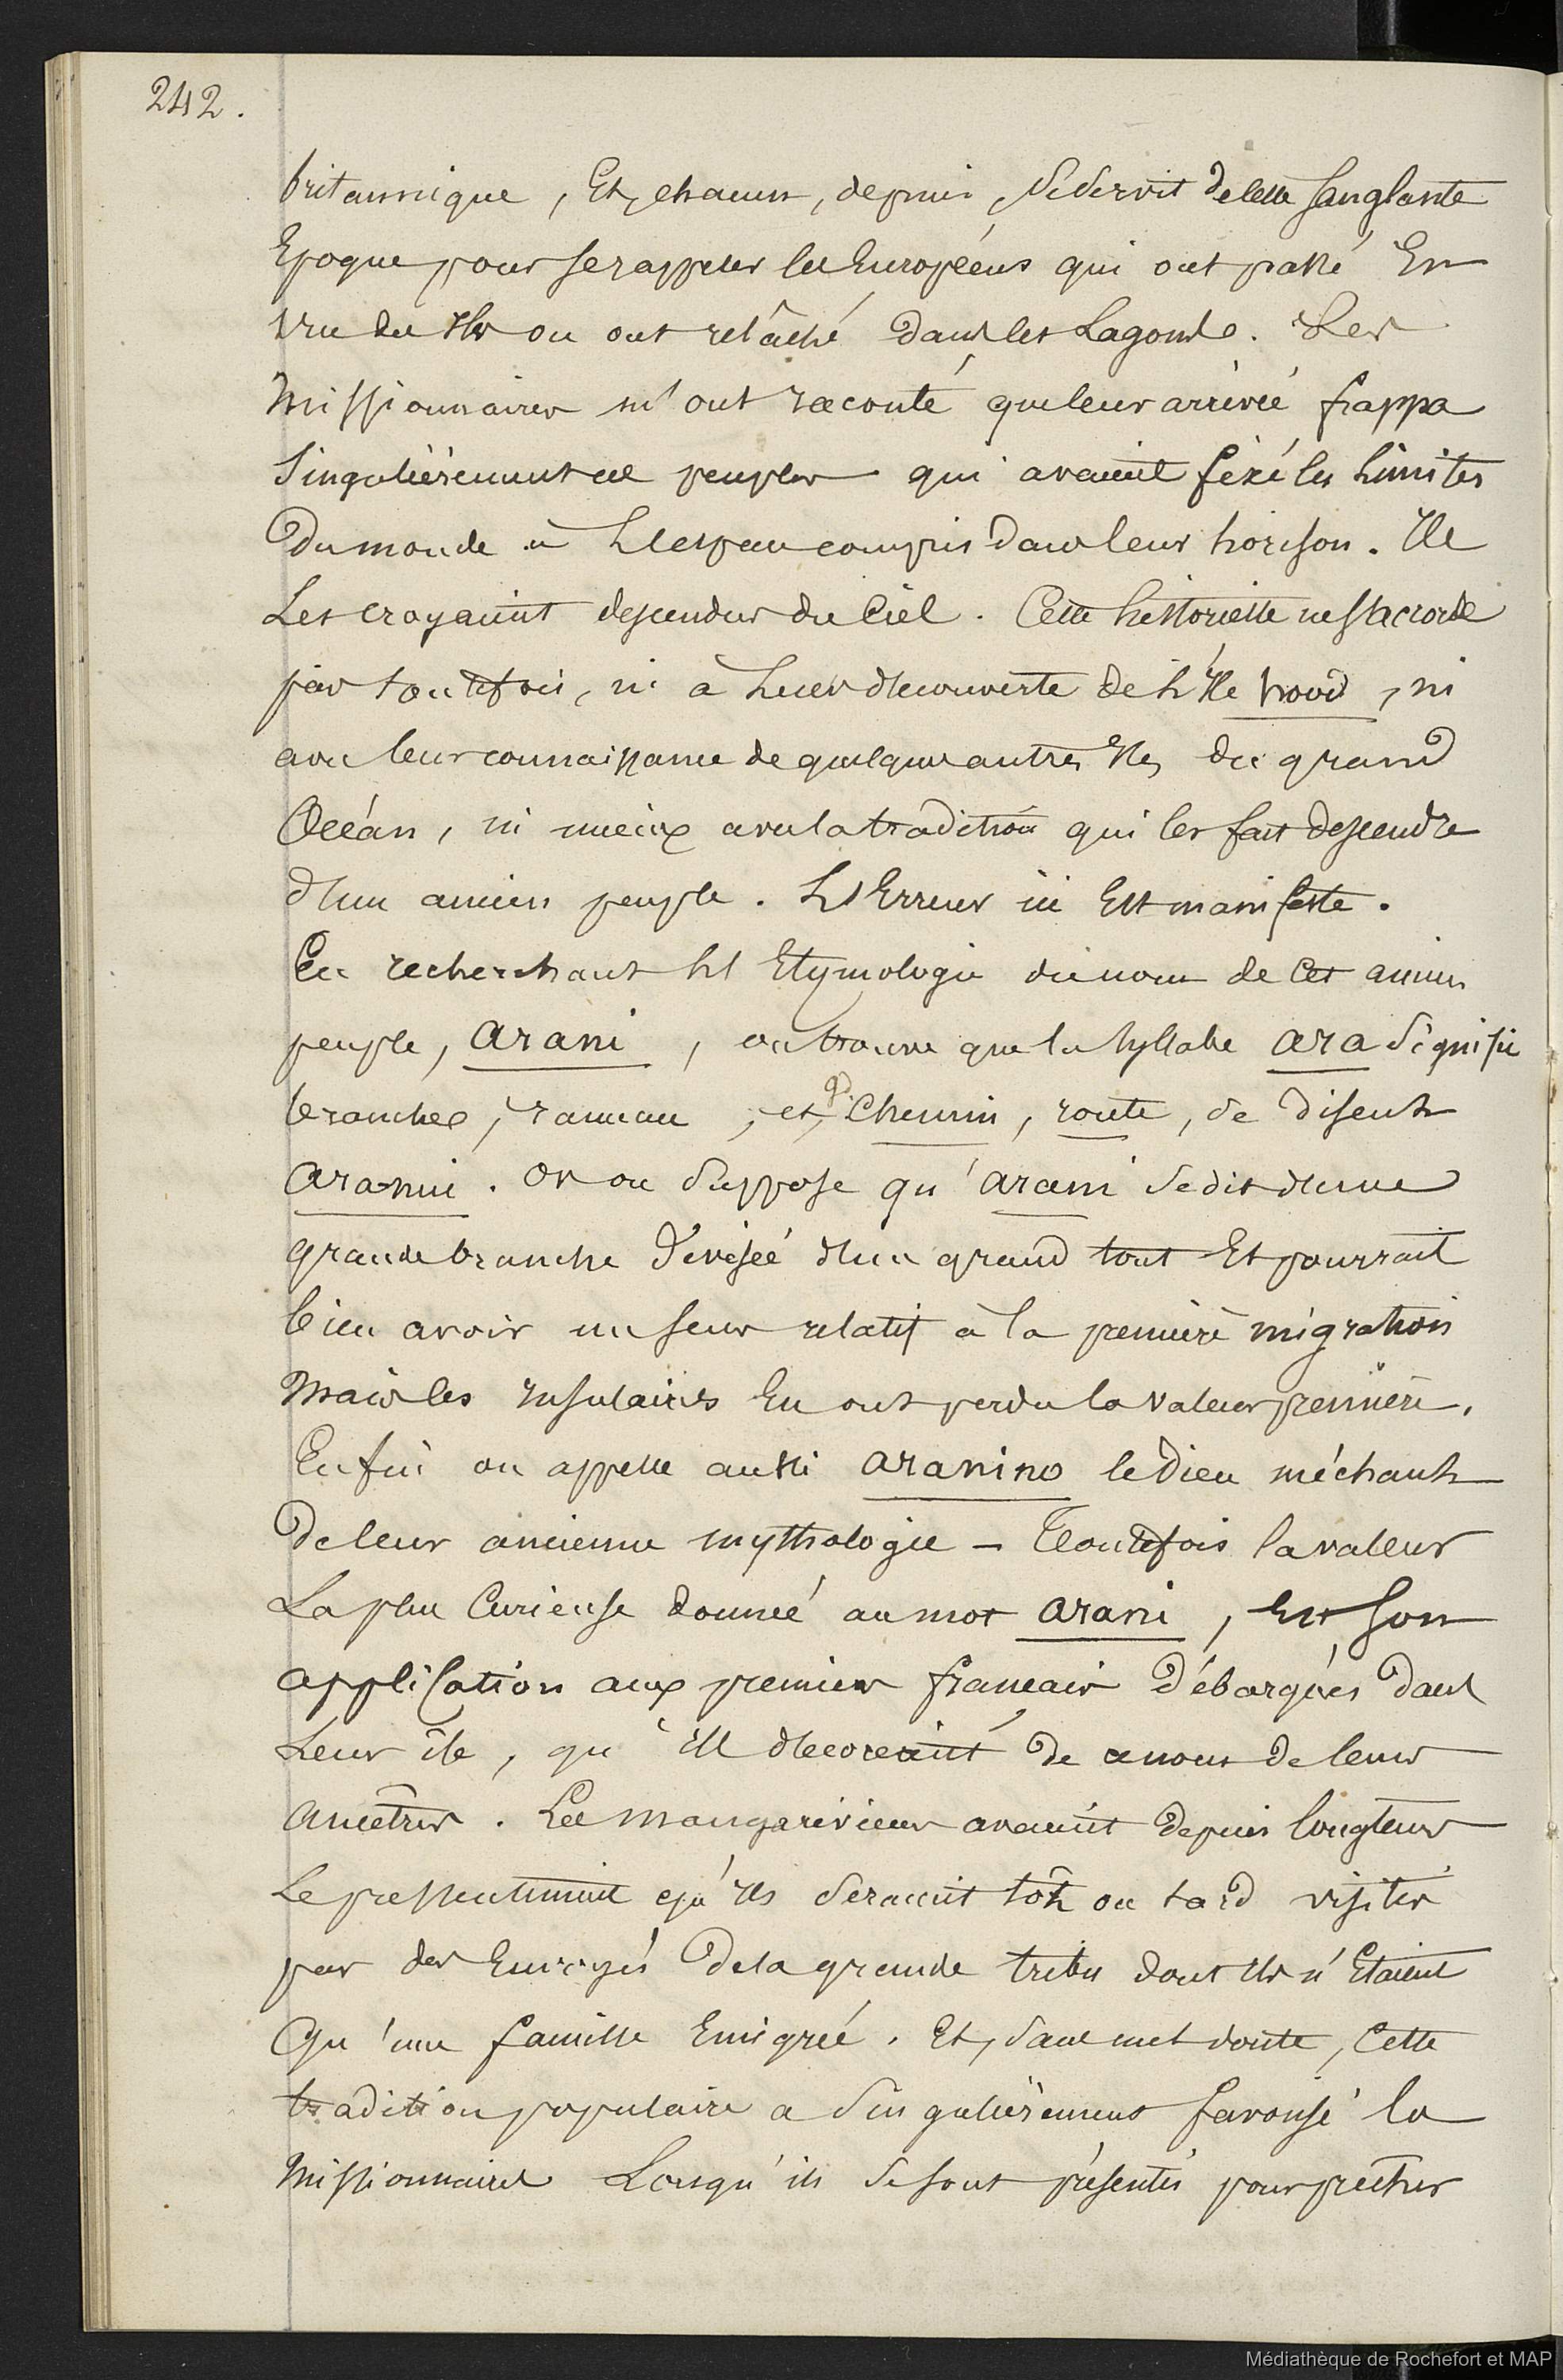 242.
britannique, Et, chacun, depuis, se servit de cette sanglante
Epoque pour se rappeler les Européens qui ont passé En
vue des Iles ou ont relâché dans les Lagons. Les
Missionnaires m'ont raconté que leur arrivée frappa
Singulièrement ces peuples qui avaient fixé les Limites
Du monde à L'espace compris dans leur horison. Ils
Les croyaient descendus du Ciel. Cette historiette ne s'accorde
pas toutefois, ni à Leur découverte de L'île hood, ni
avec leur connaissance de quelques autres Iles du grand
Océan, ni mieux avec la tradition qui les fait descendre
d'un ancien peuple. L'Erreur ici Est manifeste.
En recherchant L'Etymologie du nom de Cet ancien
peuple, arani, on trouve que la syllabe ara signifie
branches, rameau, et, qd. Chemin, route, se disent
aranui. On ou suppose qu'arani se dit d'une
grande branche divisée d'un grand tout Et pourrait
bien avoir un sens relatif à la première migration
Mais les insulaires En ont perdu la valeur première.
Enfin on appelle aussi aranino le Dieu méchant
De leur ancienne mythologie – Toutefois la valeur
La plus Curieuse donnée au mot arani, Est son
application aux premiers francais Débarqués dans
Leur île, qu'ils décorèrent de ce nom de leurs
Ancêtres. Les mangaréviens avaient depuis longtems
Le pressentiment qu'ils seraient tôt ou tard visités
par des Envoyés de la grande tribu dont ils n'Etaient
Qu'une famille Emigrée. Et, sans nul doute, Cette
tradition populaire a singulièrement favorisé les
Missionnaires Lorsqu'ils se sont présentés pour prêcher
Médiathèque de Rochefort et MAP